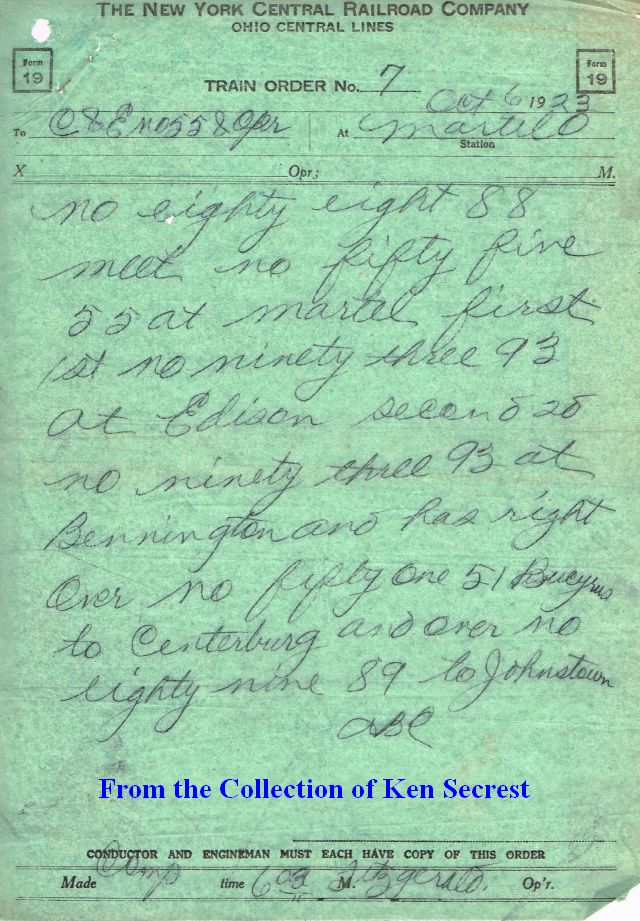 THE NEW YORK CENTRAL RAILROAD COMPANY
OHIO CENTRAL LINES
Form 19
Form 19
TRAIN ORDER No. 7
Oct 6 1923
To C&E no 55 & Opr At Martel O
Station
X Opr; M.
no eighty eight 88
meet no fifty five
55 at martel first
1st no ninety three 93
at Edison second 2d
no ninety three 93 at
Bennington and has right
Over no fifty one 51 Bucyrus
to Centerburg and over no
eighty nine 89 to Johnstown
ABC
From the Collection of Ken Secrest
CONDUCTOR AND ENGINEMAN MUST EACH HAVE COPY OF THIS ORDER
Made Comp time 603 M. Fitzgerald. Op'r.